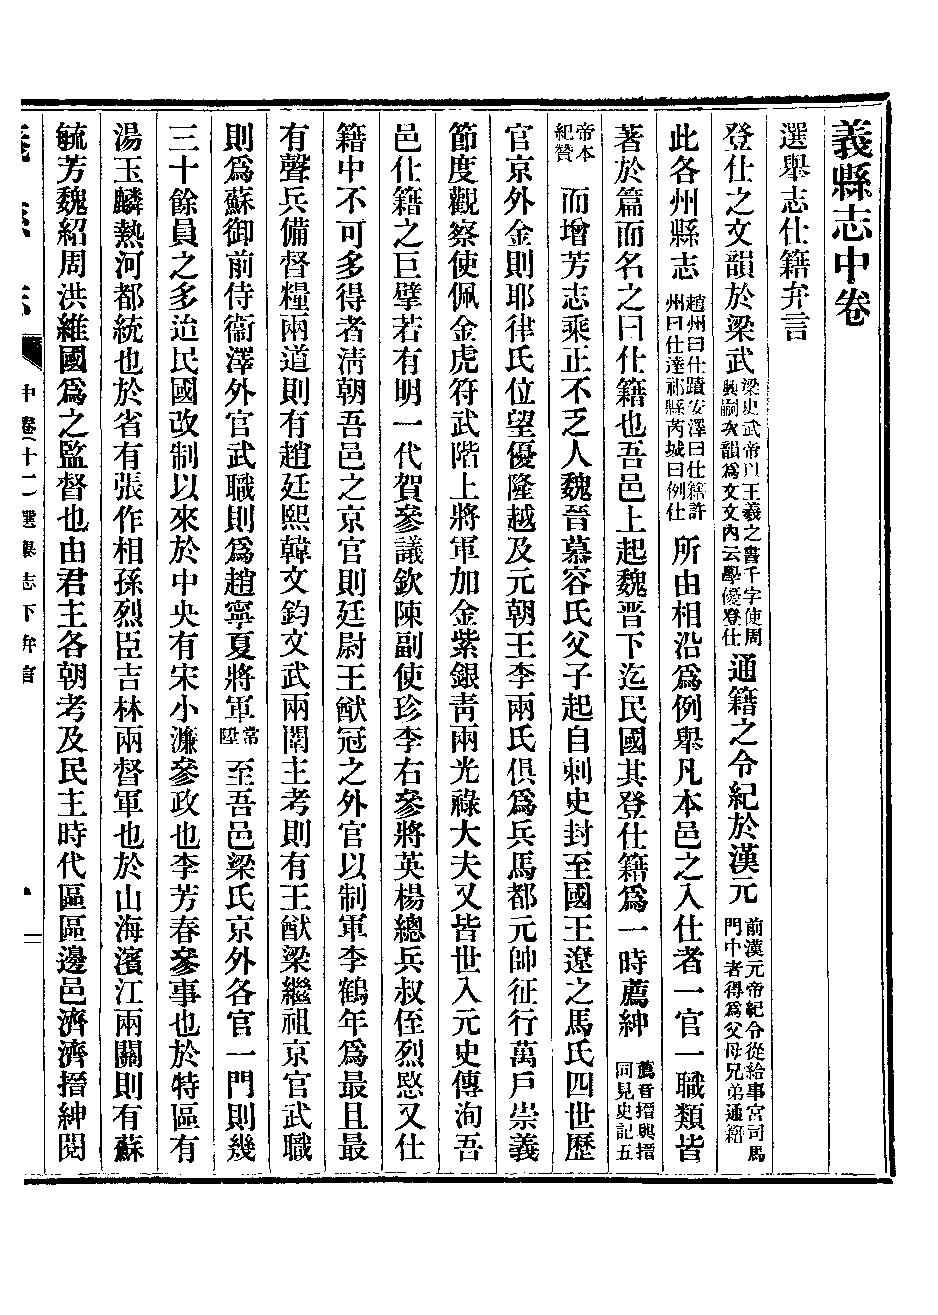 義縣志中卷
選舉志仕籍弁言
登仕之文韻於梁武梁史武帝以王羲之書千字使周興嗣次韻爲文文內云學優登仕通籍之令紀於漢元前漢元帝紀令從給事宮司馬門中者得爲父母兄弟通籍
此各州縣志趙州曰仕蹟安澤曰仕籍許州曰仕達祁縣芮城曰例仕所由相沿爲例舉凡本邑之入仕者一官一職類皆
著於篇而名之曰仕籍也吾邑上起魏晉下迄民國其登仕籍爲一時薦紳薦音搢與搢同見史記五
帝本紀贊而增芳志乘正不乏人魏晉慕容氏父子起自刺史封至國王遼之馬氏四世歷
官京外金則耶律氏位望優隆越及元朝王李兩氏俱爲兵馬都元帥征行萬戶崇義
節度觀察使佩金虎符武階上將軍加金紫銀靑兩光祿大夫又皆世入元史傳洵吾
邑仕籍之巨擘若有明一代賀參議欽陳副使珍李右參將英楊總兵叔侄烈愍又仕
籍中不可多得者淸朝吾邑之京官則廷尉王猷冠之外官以制軍李鶴年爲最且最
有聲兵備督糧兩道則有趙廷熙韓文鈞文武兩闈主考則有王猷梁繼祖京官武職
則爲蘇御前侍衞澤外官武職則爲趙寧夏將軍常陞至吾邑梁氏京外各官一門則幾
三十餘員之多迨民國改制以來於中央有宋小濂參政也李芳春參事也於特區有
湯玉麟熱河都統也於省有張作相孫烈臣吉林兩督軍也於山海濱江兩關則有蘇
毓芳魏紹周洪維國爲之監督也由君主各朝考及民主時代區區邊邑濟濟搢紳閱
義縣志 中卷(十一) 選舉志下弁言 一